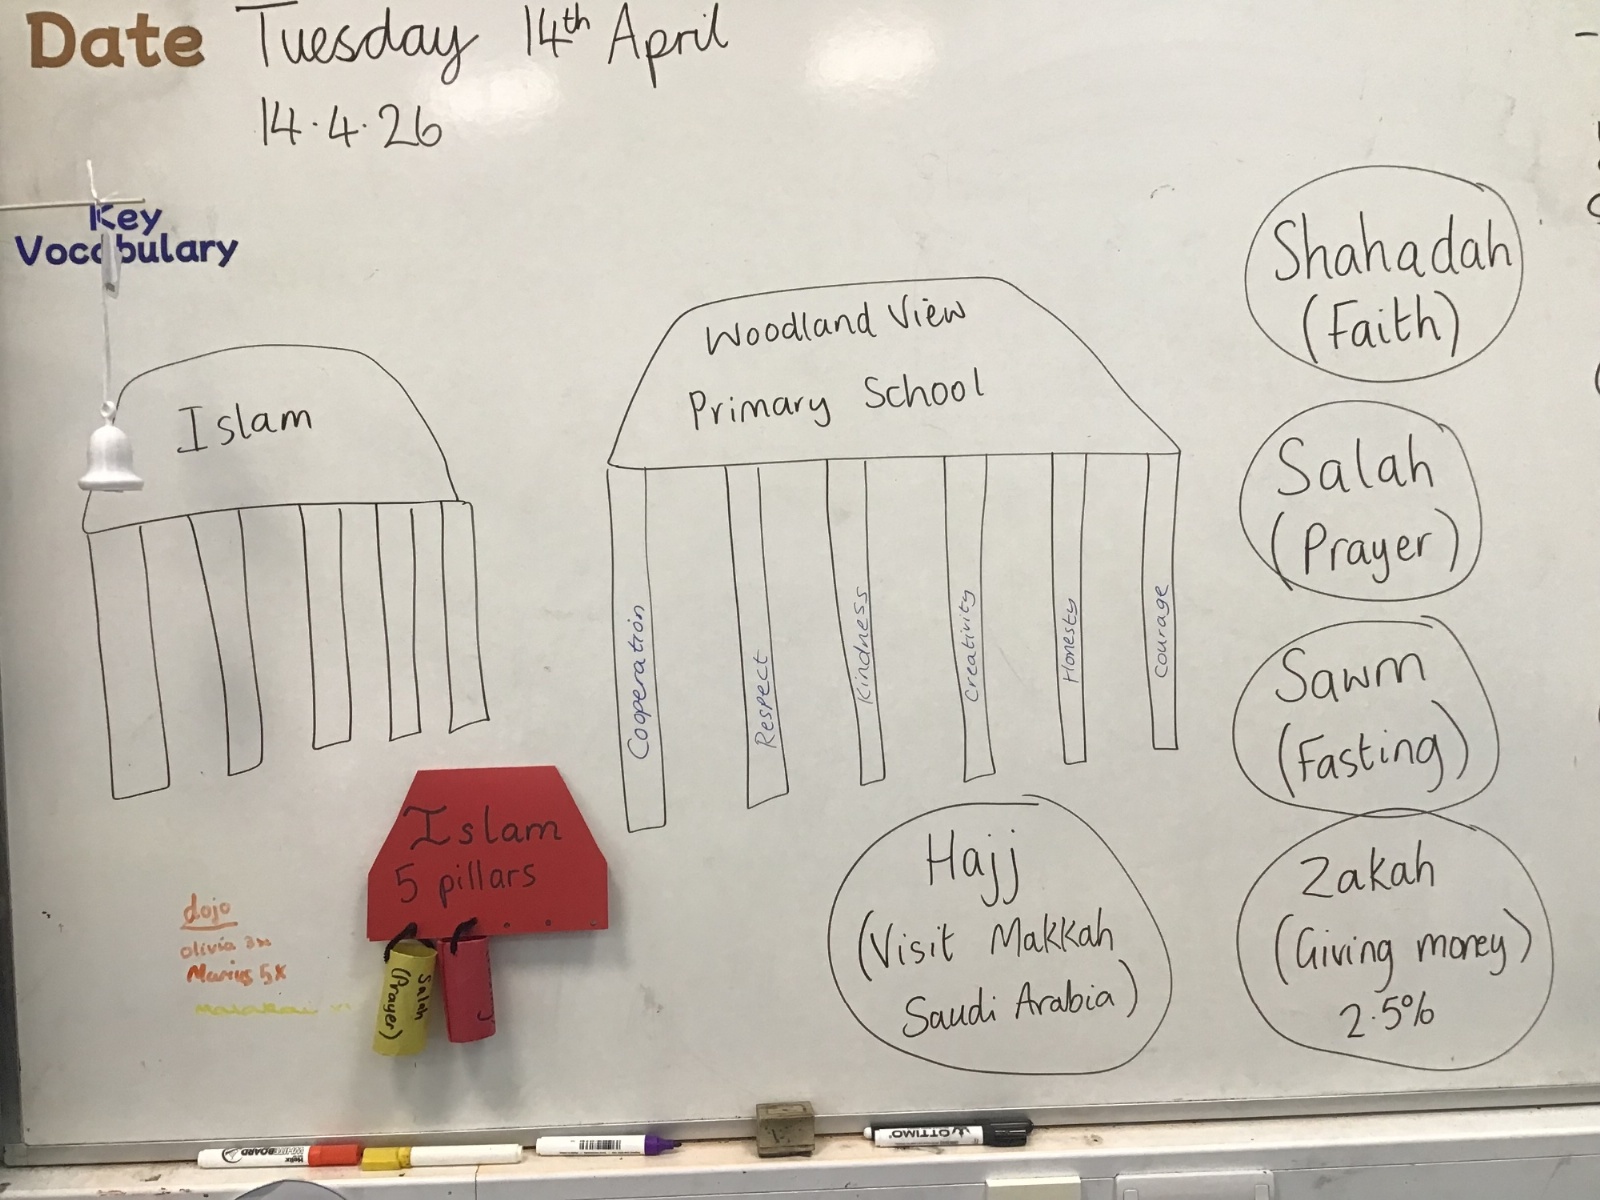 Date Tuesday 14th April
14.4.26
Key
Vocabulary
Islam
Woodland View
Primary School
Cooperation
Respect
Kindness
Creativity
Honesty
Courage
Shahadah
(Faith)
Salah
(Prayer)
Sawm
(Fasting)
Hajj
(Visit Makkah
Saudi Arabia)
Zakah
(Giving money)
2.5%
Islam
5 pillars
Salah
(Prayer)
dojo
olivia
Marius 5x
WHITEBOARD
OTTIMO